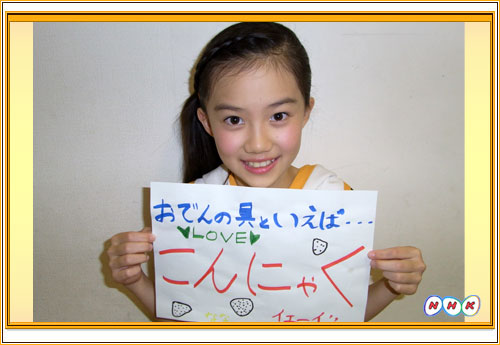 おでんの具といえば・・・
♥LOVE♥
こんにゃく
NHK